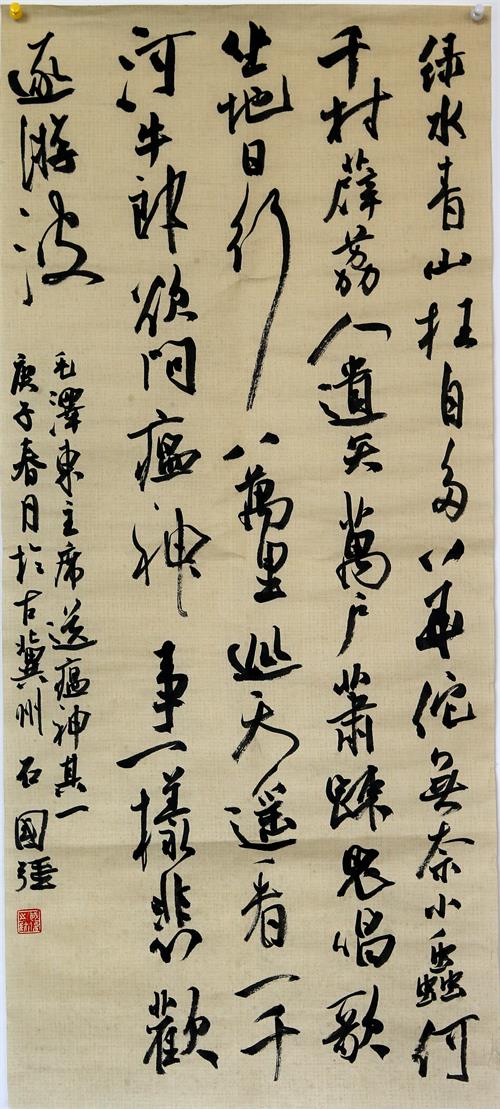 绿水青山枉自多華佗無奈小蟲何
千村薜荔人遺矢萬户蕭踈鬼唱歌
坐地日行八萬里巡天遥看一千
河牛郎欲問瘟神事一樣悲歡
逐游波
毛澤東主席送瘟神其一
庚子春月於古冀州石國强